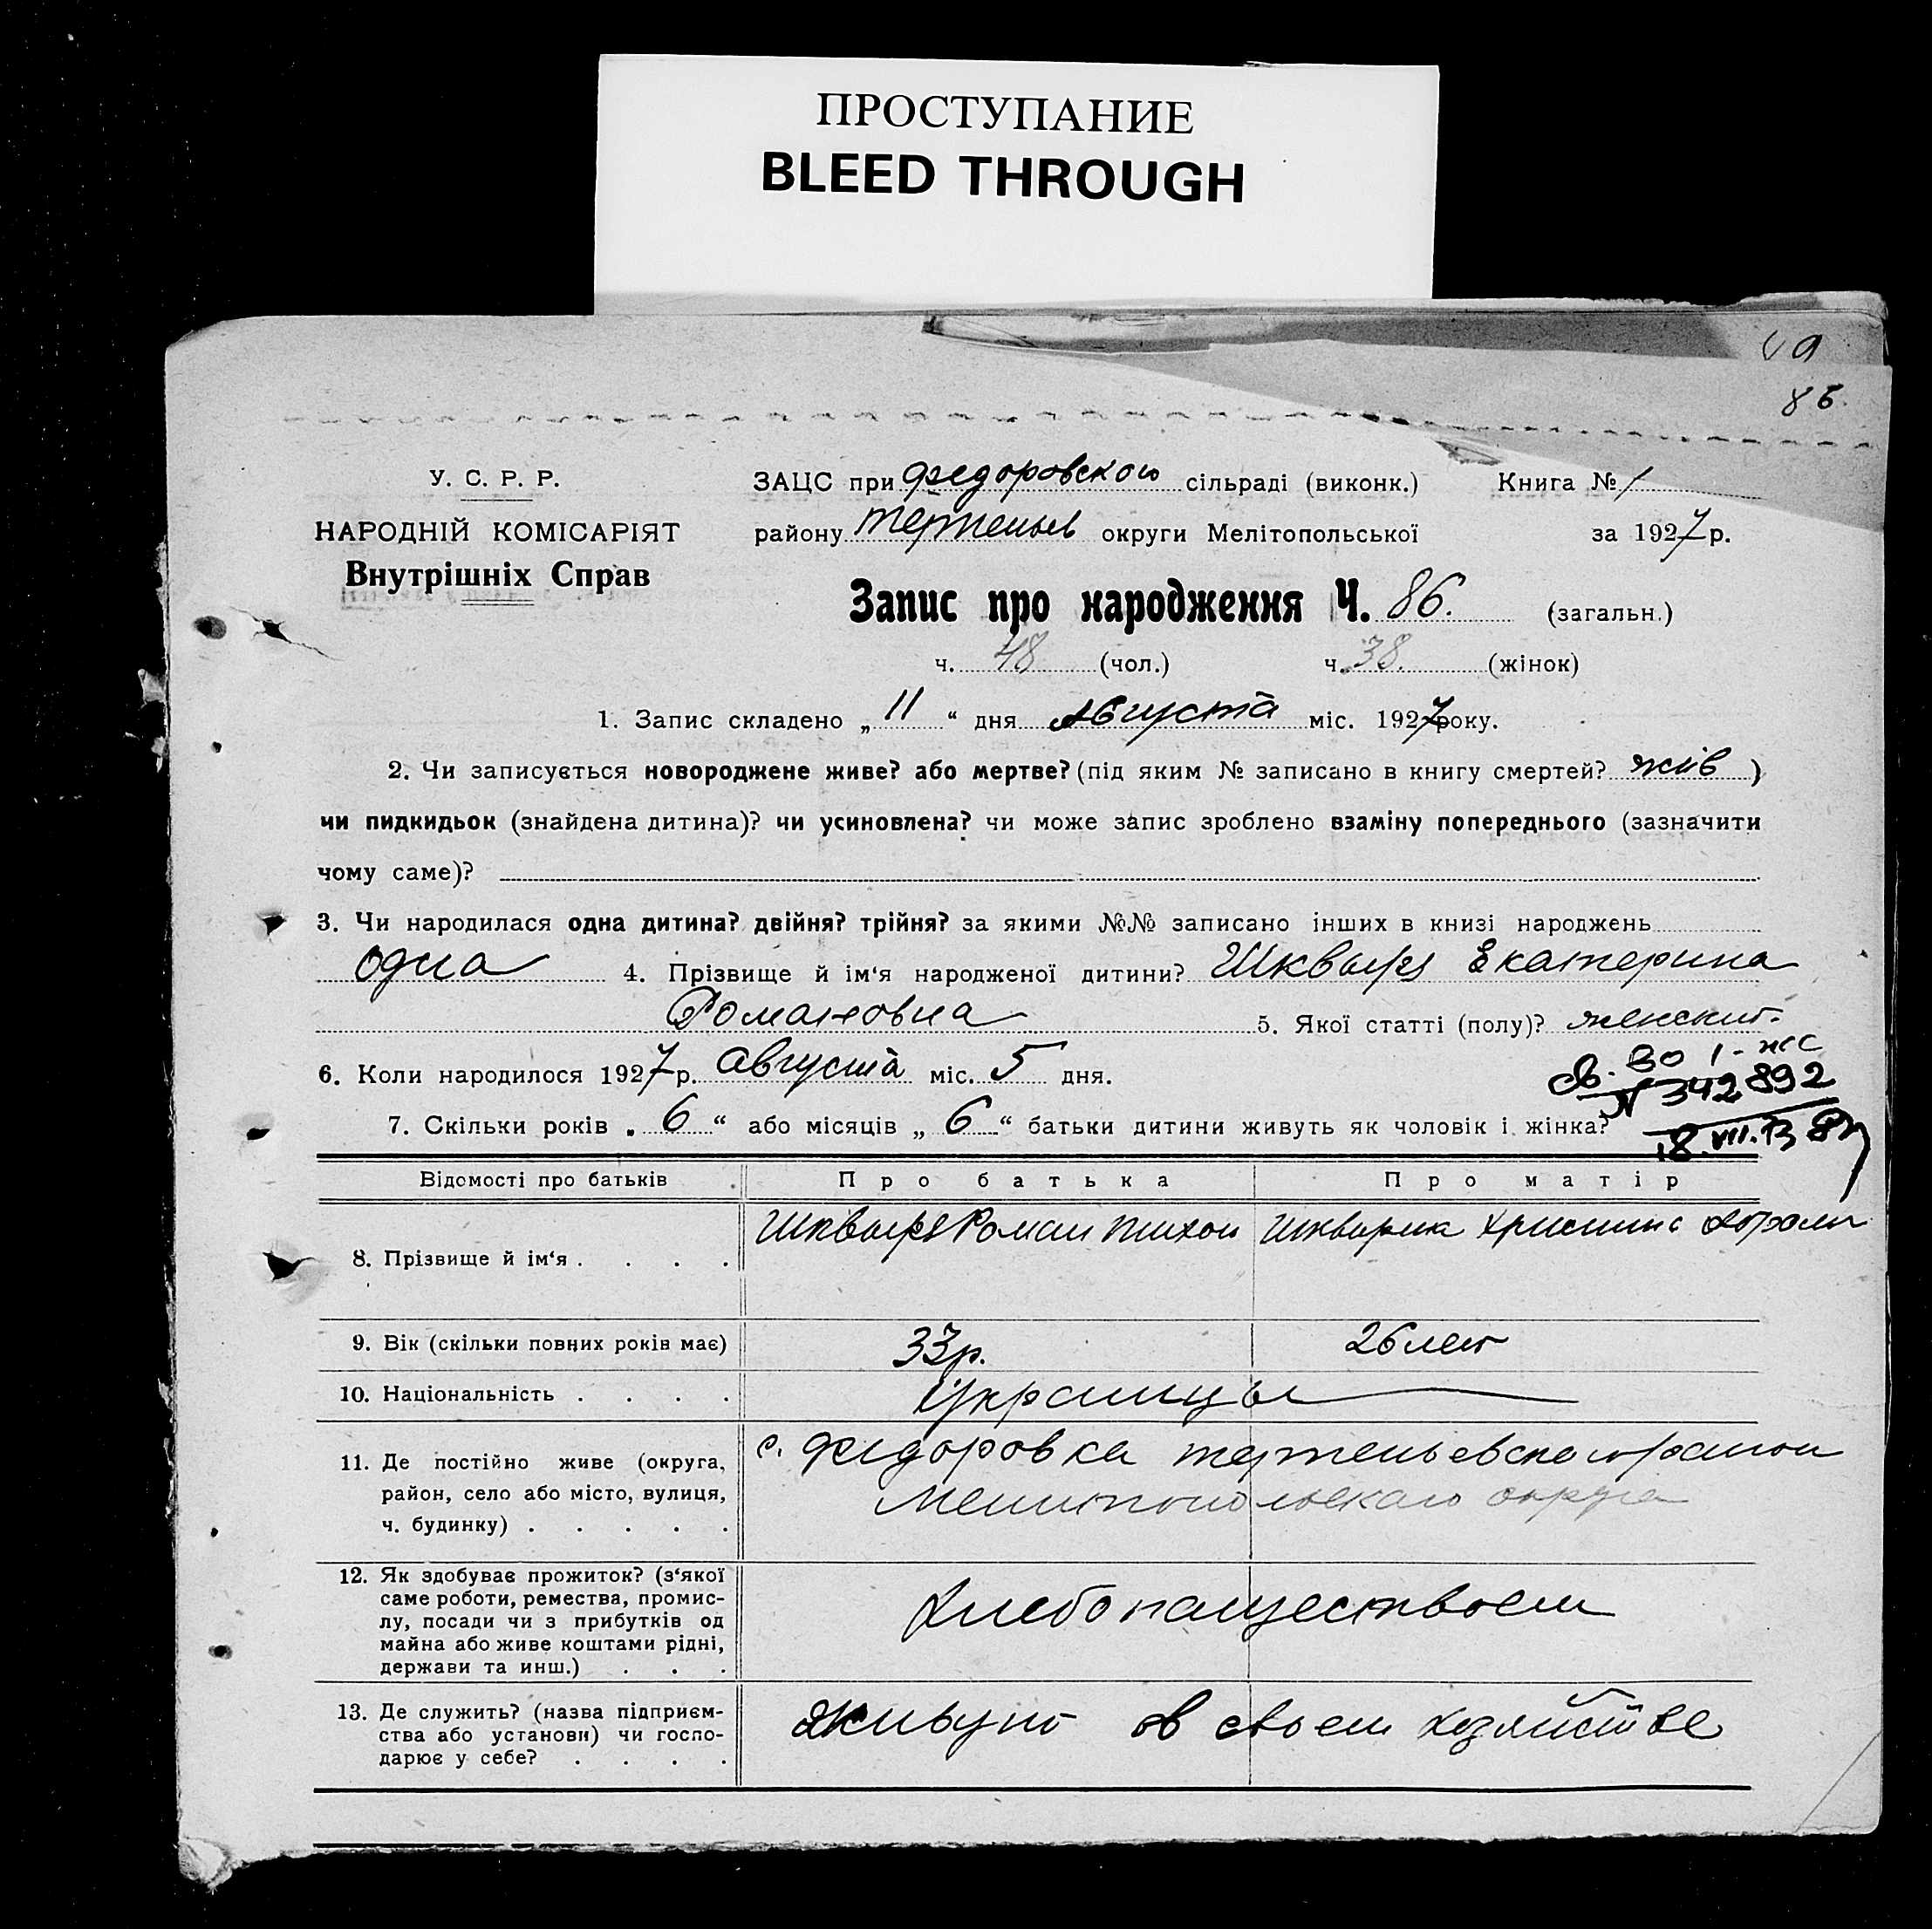 ПРОСТУПАНИЕ
BLEED THROUGH
86.
У. С. Р. Р.
НАРОДНІЙ КОМІСАРІЯТ
Внутрішніх Справ
ЗАЦС при Федоровском сільраді (виконк.) Книга № 1
району Терпеньев округи Мелітопольської за 1927 р.
Запис про народження Ч. 86. (загальн.)
ч. 48 (чол.) ч. 38. (жінок)
1. Запис складено „ 11 “ дня Августа міс. 1927 року.
2. Чи записується новороджене живе? або мертве? (під яким № записано в книгу смертей? жив )
чи пидкидьок (знайдена дитина)? чи усиновлена? чи може запис зроблено взаміну попереднього (зазначити
чому саме)?
3. Чи народилася одна дитина? двійня? трійня? за якими №№ записано інших в книзі народжень
одна 4. Прізвище й ім‘я народженої дитини? Шквыря Екатерина
Романовна 5. Якої статті (полу)? женский.
6. Коли народилося 1927 р. Августа міс. 5 дня.
св. ВО 1-жс
N 342892
18.VII.73
7. Скільки років „ 6 “ або місяців „ 6 “ батьки дитини живуть як чоловік і жінка?
Відомості про батьків Про батька Про матір
8. Прізвище й ім‘я . . . . Шквыря Роман Тихон Христина
9. Вік (скільки повних років має) 33 р. 26 лет
10. Національність . . . . Украинцы
11. Де постійно живе (округа, район, село або місто, вулиця, ч. будинку) . . . . . с. Федоровка Терпеньевского района
Мелитопольского округа
12. Як здобуває прожиток? (з‘якої саме роботи, ремества, промис-
лу, посади чи з прибутків од
майна або живе коштами рідні,
держави та инш.) . . . Хлебопашеством
13. Де служить? (назва підприєм-
ства або установи) чи госпо-
дарює у себе? . . . . Живут в своем хозяйстве